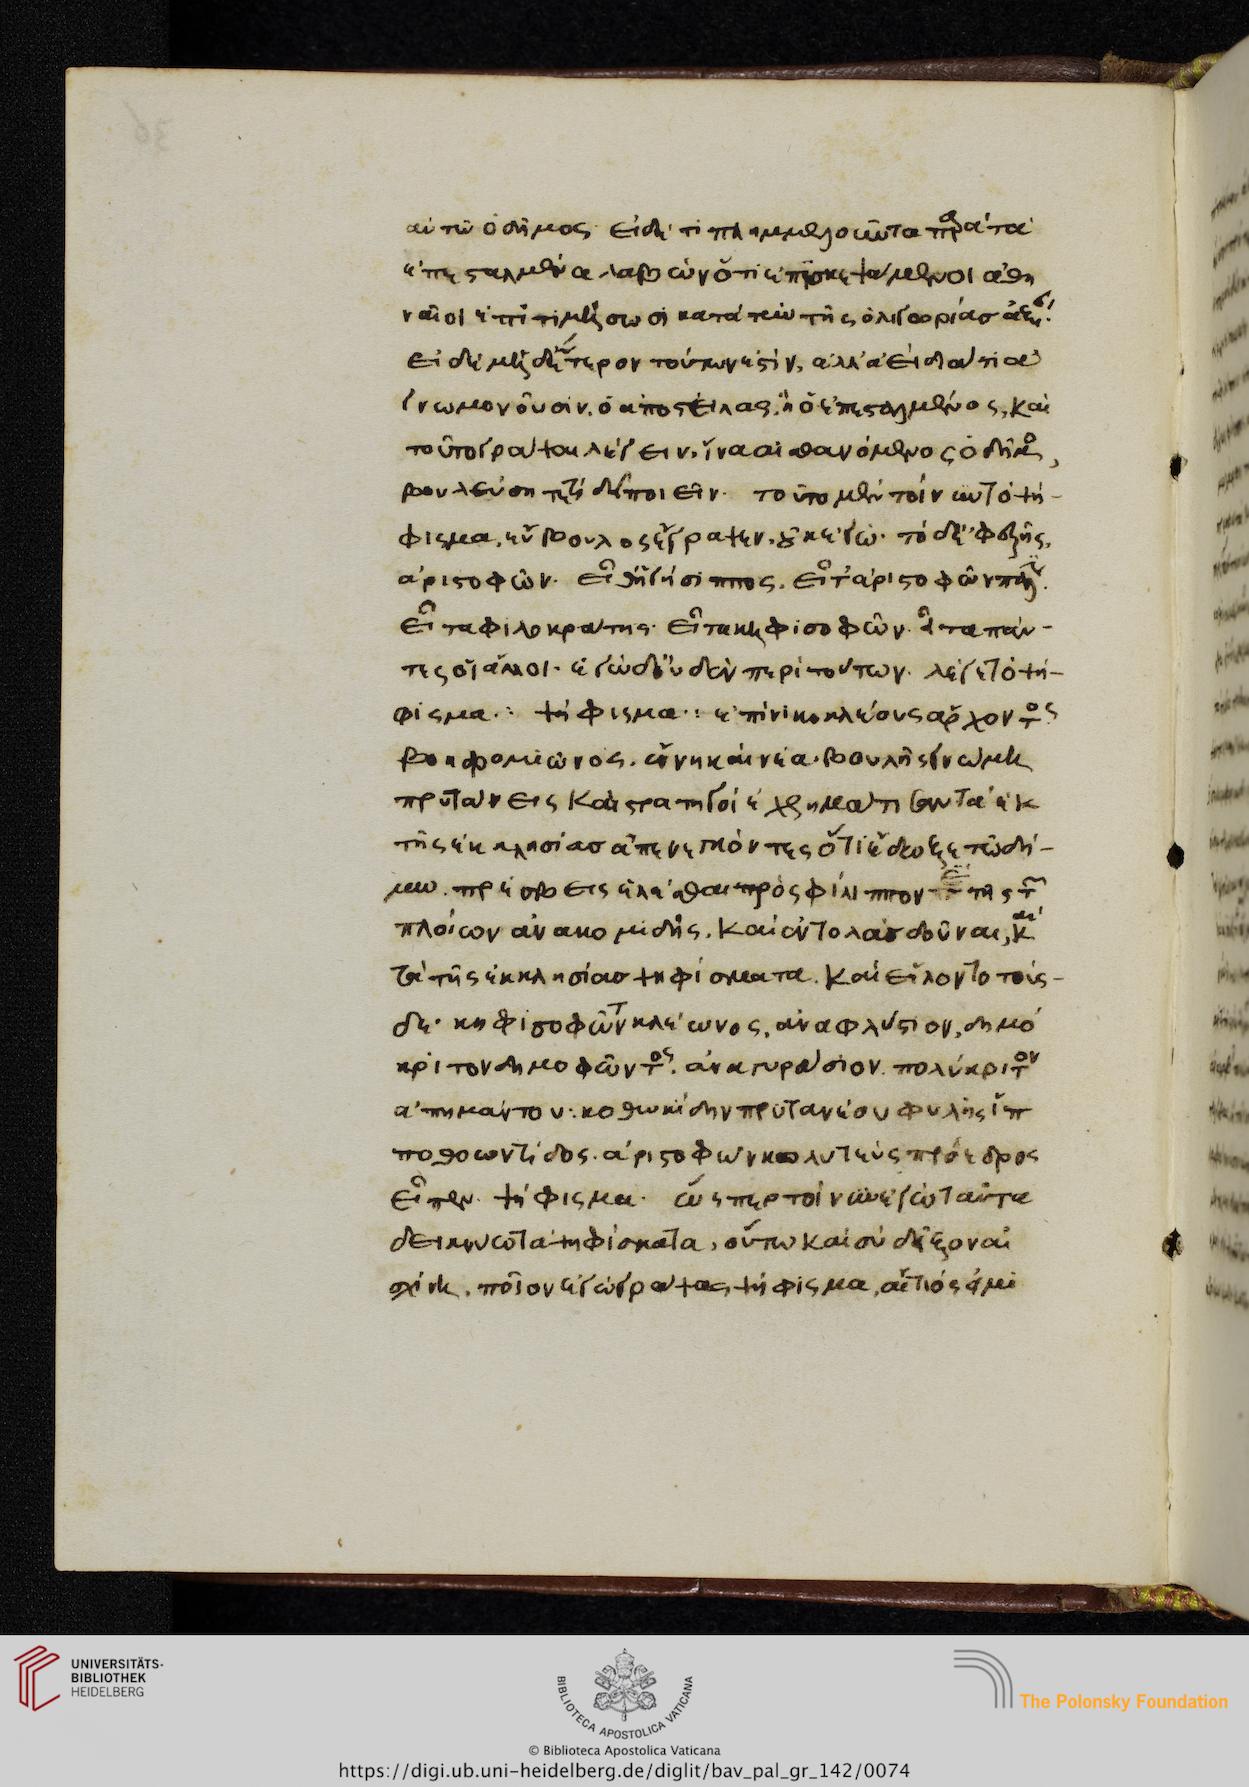 αὐτῶ ὁ δῆμος. εἰ δέ τι πλημμελοῦντα παρὰ τὰ
ἐπεσταλμένα λαβὼν ὅτι ἐπισκεψάμενοι ἀθη
ναῖοι ἐπιτιμήσωσι κατὰ τὴν τῆς ὀλιγωρίας ἀξίαν.
εἰ δὲ μηδέτερον τούτων ἐστίν, ἀλλὰ ἰδίᾳ τι ἀ
γνωμονοῦσιν, ὁ ἀποστείλας, ἢ ὁ ἐπεσταλμένος, καὶ
τοῦτο γράψαι λέγειν, ἵνα αἰσθανόμενος ὁ δῆμος,
βουλεύση τί δεῖ ποιεῖν. τοῦτο μὲν τοίνυν τὸ ψή-
φισμα, εὔβουλος ἔγραψεν, οὐκ ἐγώ. τὸ δ' ἐφεξῆς,
ἀριστοφῶν. εἶθ' ἡγήσιππος. εἶτ' ἀριστοφῶν πάλιν.
εἶτα φιλοκράτης. εἶτα κηφισοφῶν. εἶτα πάν-
τες οἱ ἄλλοι. ἐγὼ δ' οὐδὲν περὶ τούτων. λέγε τὸ ψή-
φισμα: ψήφισμα: ἐπὶ νικοκλέους ἄρχοντος
βοηδρομιῶνος. ἕνη καὶ νέα. βουλῆς γνώμη
πρυτάνεις καὶ στρατηγοὶ ἐχρημάτισαν τὰ ἐκ
τῆς ἐκκλησίας ἀπενεγκόντες ὅτι ἔδοξε τῶ δή-
μω. πρέσβεις ἑλέσθαι πρὸς φίλιππον τῆς τῶν
πλοίων ἀνακομιδῆς. καὶ ἐντολὰς δοῦναι, κατὰ
τὰ τῆς ἐκκλησίας ψηφίσματα. καὶ εἵλοντο τούς-
δε. κηφισοφῶντα κλέωνος, ἀναφλύστιον, δημό
κριτον δημοφῶντος. ἀναγυράσιον. πολύκριτον
ἀπημάντου. κοθωκίδην πρυτανείου φυλῆς ἱπ
ποθοωντίδος. ἀριστοφῶν κολυττεὺς πρόεδρος
εἶπεν. ψήφισμα. ὥσπερ τοίνυν ἐγὼ ταῦτα
δεικνύω τὰ ψηφίσματα, οὕτω καὶ σὺ δεῖξον αἰ
σχίνη, ποῖον ἐγὼ γράψας ψήφισμα, αἴτιός εἰμι
UNIVERSITÄTS-
BIBLIOTHEK
HEIDELBERG
BIBLIOTECA APOSTOLICA VATICANA
The Polonsky Foundation
© Biblioteca Apostolica Vaticana
https://digi.ub.uni-heidelberg.de/diglit/bav_pal_gr_142/0074